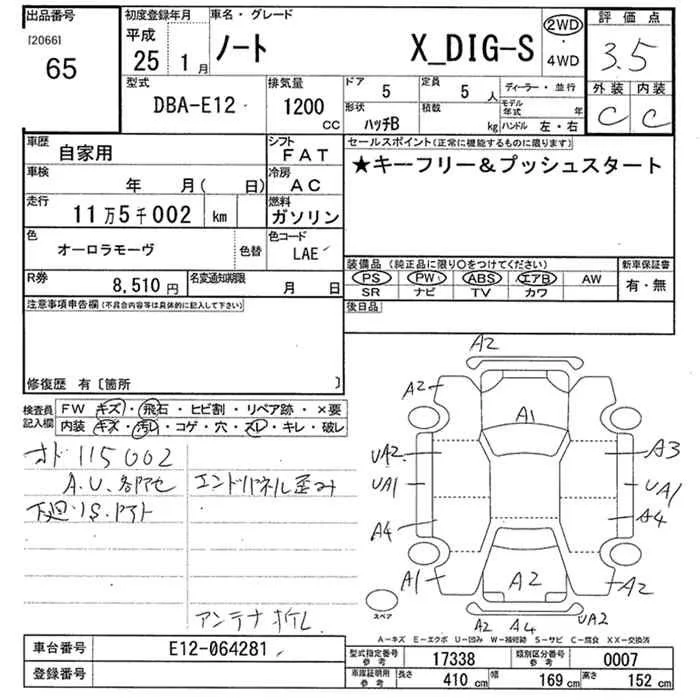 出品番号 初度登録年月 車名・グレード 2WD 評価点
[2066] 平成 ノート X_DIG-S ・ 3.5
65 25 1月 4WD
型式 排気量 ドア 5 定員 5人 ディーラー・並行 外装 内装
DBA-E12 1200 CC 形状 ハッチB 積載 kg モデル年式 年 C C
ハンドル 左・右
車歴 自家用 シフト FAT セールスポイント(正常に機能するものに限ります)
車検 年 月( 日) 冷房 AC ★キーフリー&プッシュスタート
走行 11万5千002 km 燃料 ガソリン
色 オーロラモーヴ 色替 色コード LAE
装備品(純正品に限り○をつけてください) 新車保証書
R券 8,510円 名変通知期限 月 日 PS PW ABS エアB AW 有・無
SR ナビ TV カワ
注意事項申告欄(不具合内容等は具体的に記入して下さい) 後日品
修復歴 有〔箇所 〕
検査員記入欄 FW キズ・飛石・ヒビ割・リペア跡・×要
内装 キズ・汚レ・コゲ・穴・スレ・キレ・破レ
オド115002
A.U.各部色 エンドパネル歪み
下廻りS.
アンテナ折レ
A2
A2
A1
UA2 A3
UA1 UA1
A4 A4
A1 A2 A2
A2 A4 UA2
スペア
A-キズ E-エクボ U-凹み W-補修跡 S-サビ C-腐食 XX-交換済
車台番号 E12-064281
型式指定番号 参考 17338 類別区分番号 参考 0007
登録番号
車庫証明用 参考 長さ 410 cm 幅 169 cm 高さ 152 cm